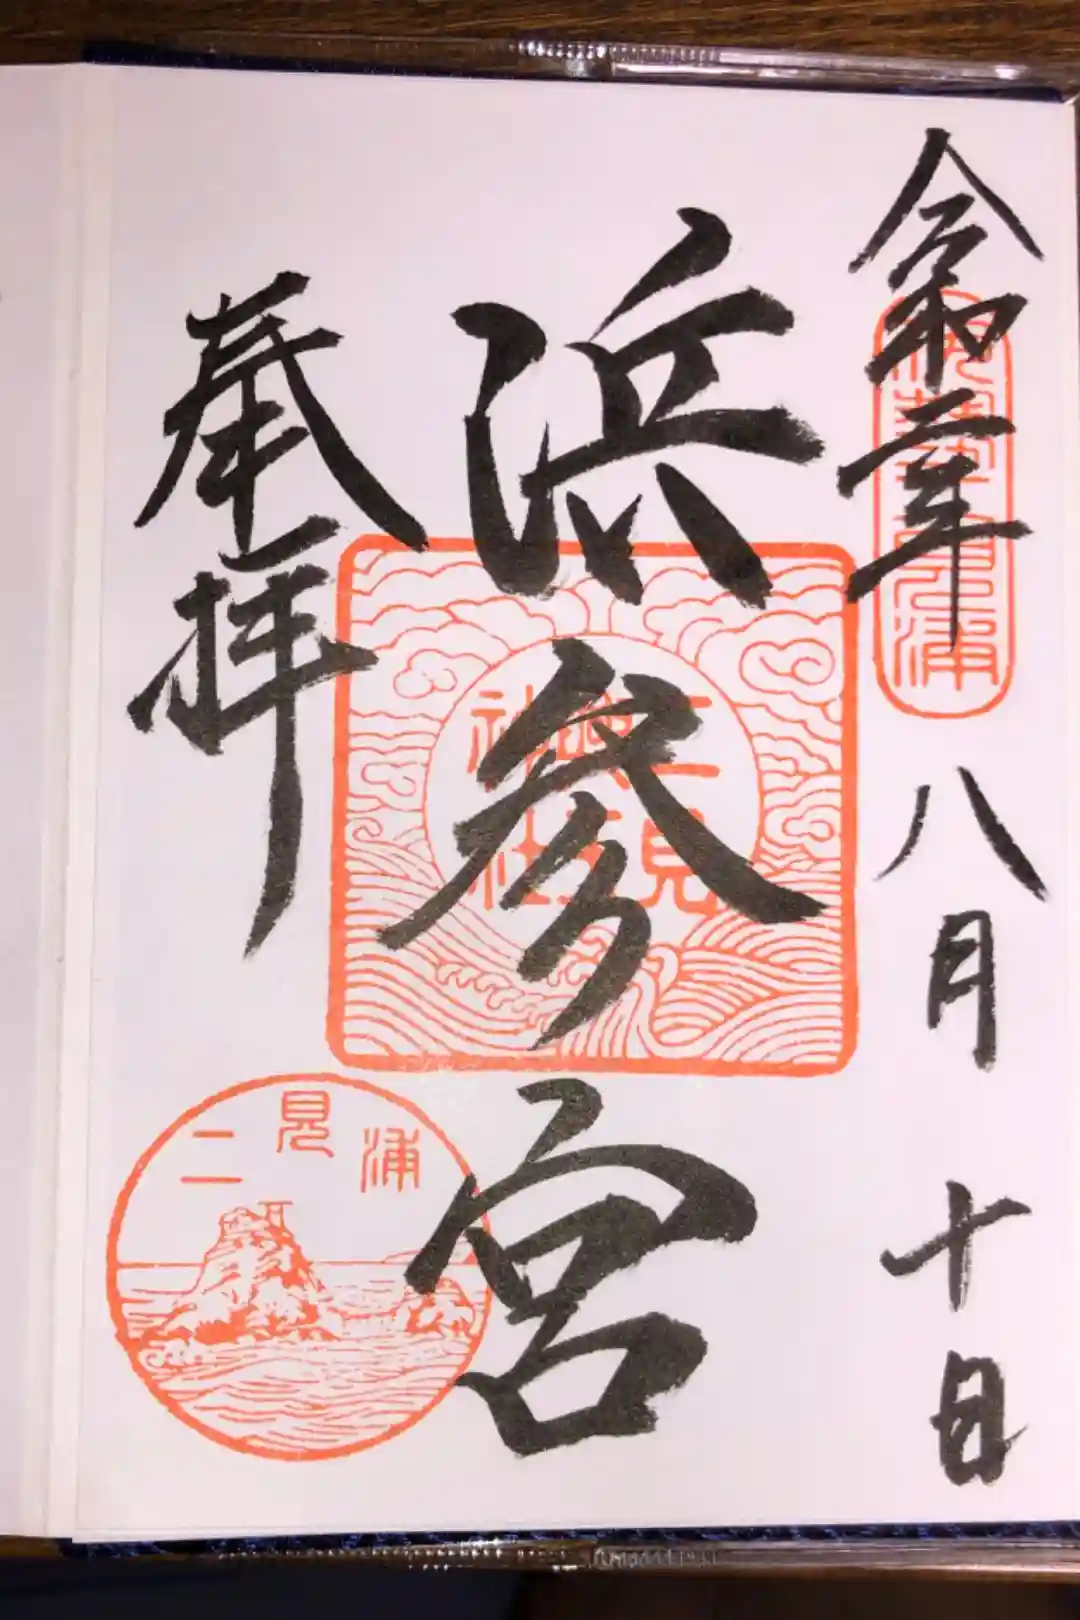 令和二年八月十日
浜参宮
奉拝
二見興玉神社
二見浦